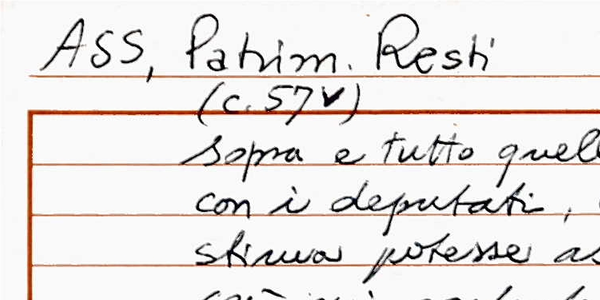 ASS, Patrim. Resti
(c. 57v)
sopra e tutto quell
con i deputati,
stima potesse as